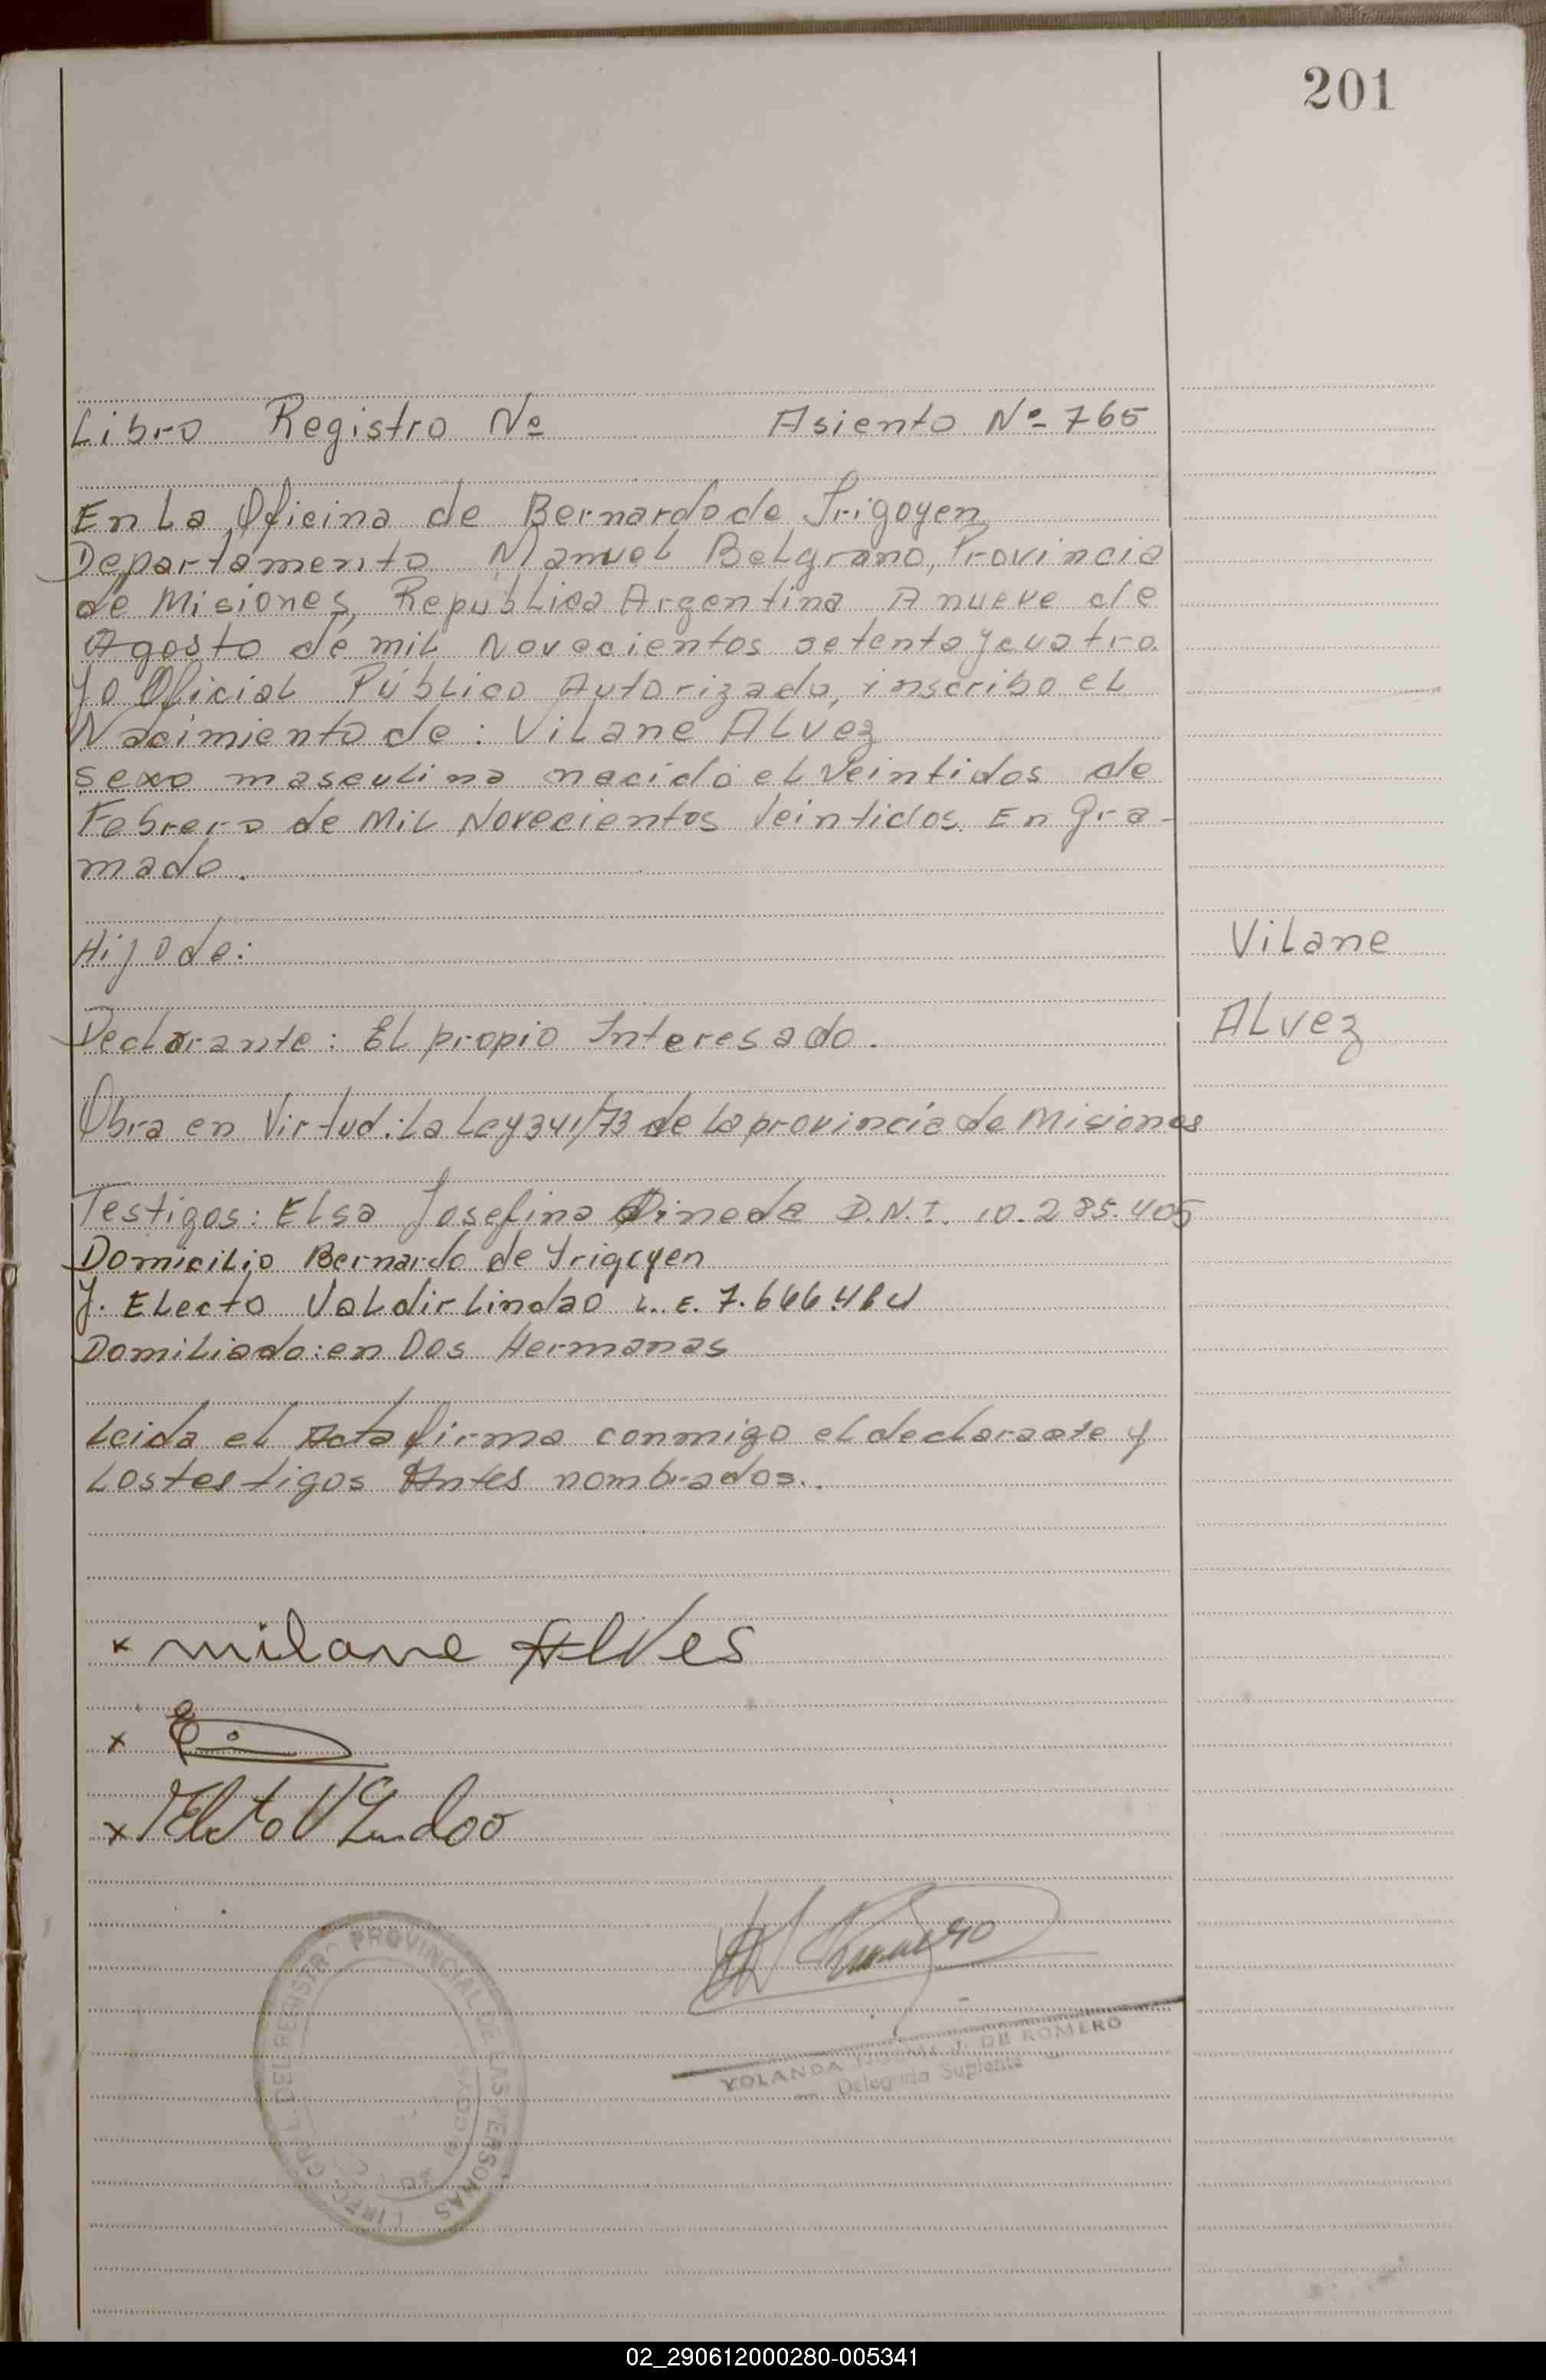 201
Libro Registro Nº Asiento Nº 765
En La Oficina de Bernardo de Irigoyen
Departamento Manuel Belgrano, Provincia
de Misiones, República Argentina A nueve de
Agosto de mil Novecientos setenta y cuatro.
Yo Oficial Público Autorizado, inscribo el
Nacimiento de: Vilane Alvez
sexo masculino nacido el veintidos de
Febrero de Mil Novecientos Veintidos. En Gra-
mado.
Hijo de:
Vilane
Declarante: El propio Interesado.
Alvez
Obra en Virtud: La Ley 341/73 de la provincia de Misiones
Testigos: Elsa Josefina Pineda D.N.I. 10.285.405
Domicilio Bernardo de Irigoyen
Y. Electo Valdir Lindao L.E.
Domiliado: en Dos Hermanas
Leida el Acta firma conmigo el declarante y
Los testigos Antes nombrados..
x milane Alves
x
x Elcto V Lindoo
Romero
YOLANDA NOEMI J. DE ROMERO
Delegada Suplente
DIREC. GRAL. DEL REGISTRO PROVINCIAL DE LAS PERSONAS
02_290612000280-005341